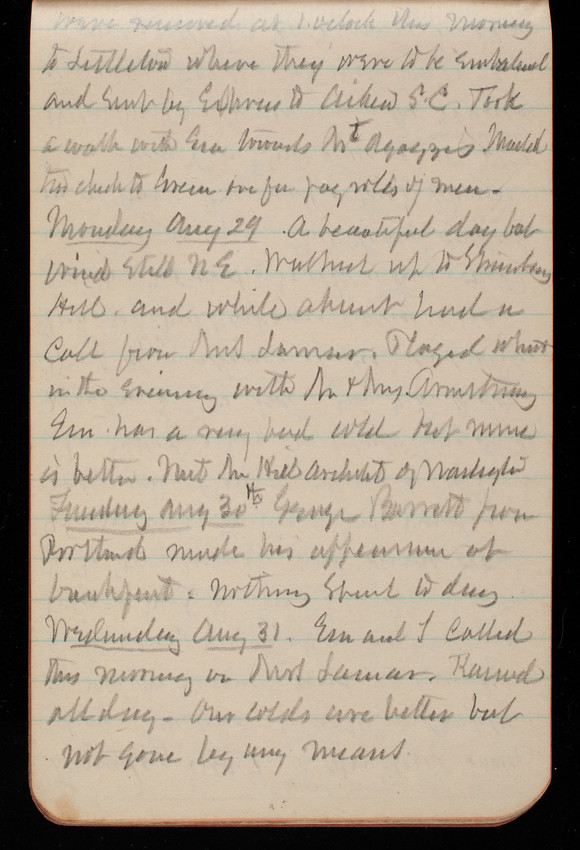 were removed at 1 oclock this morning
to Littleton where they were to be embalmed
and sent by Express to Aiken S.C. Took
a walk with Em towards Mt Agassiz Mailed
check to Green for pay rolls of men -
Monday Aug 29. A beautiful day but
wind still N E. Walked up to Strawberry
Hill. and while absent had a
call from Mrs Lamar. Played whist
in the evening with Mr & Mrs Armstrong
Em has a very bad cold but mine
is better. Met Mr Hill architect of Washington
Tuesday Aug 30th George Barrett from
Portland made his appearance at
breakfast. Nothing Spent to day
Wednesday Aug 31. Em and I called
this morning on Mrs Lamar. Rained
all day - Our colds are better but
not gone by any means.